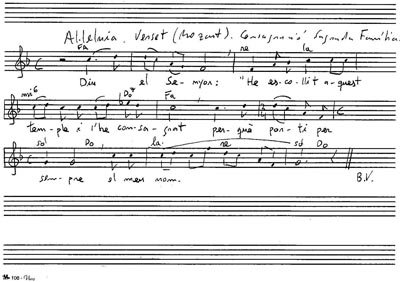 Al.leluia. Verset (Mozart). Consagració Sagrada Família.
Fa re la
Diu el Se-nyor: "He es-co-llit a-quest
mi6 Do⁷ Fa
tem-ple i l'he con-sa-grat per-què por-ti per
sol Do la re sol Do
sem-pre el meu nom. B.V.
100 -